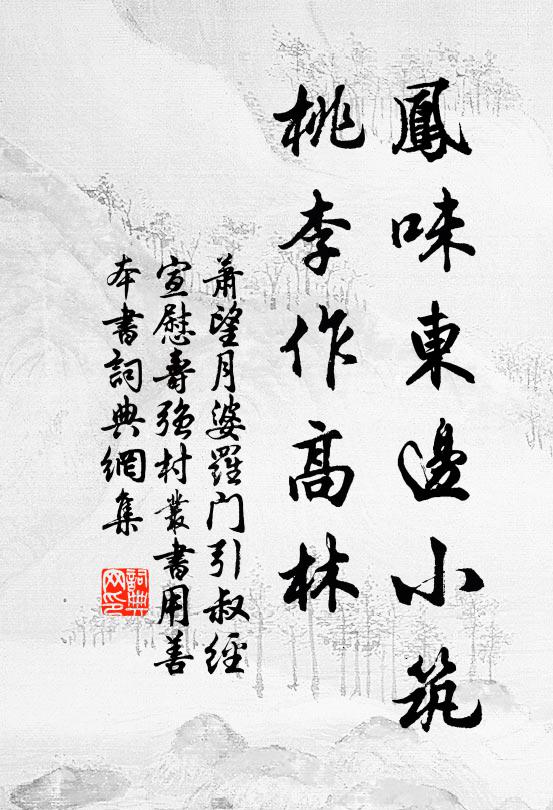 鳳味東邊小筑
桃李作高林
蕭望月婆羅门引叔經
宣慰壽强村叢書用善
本書詞典網集
詞典
网印